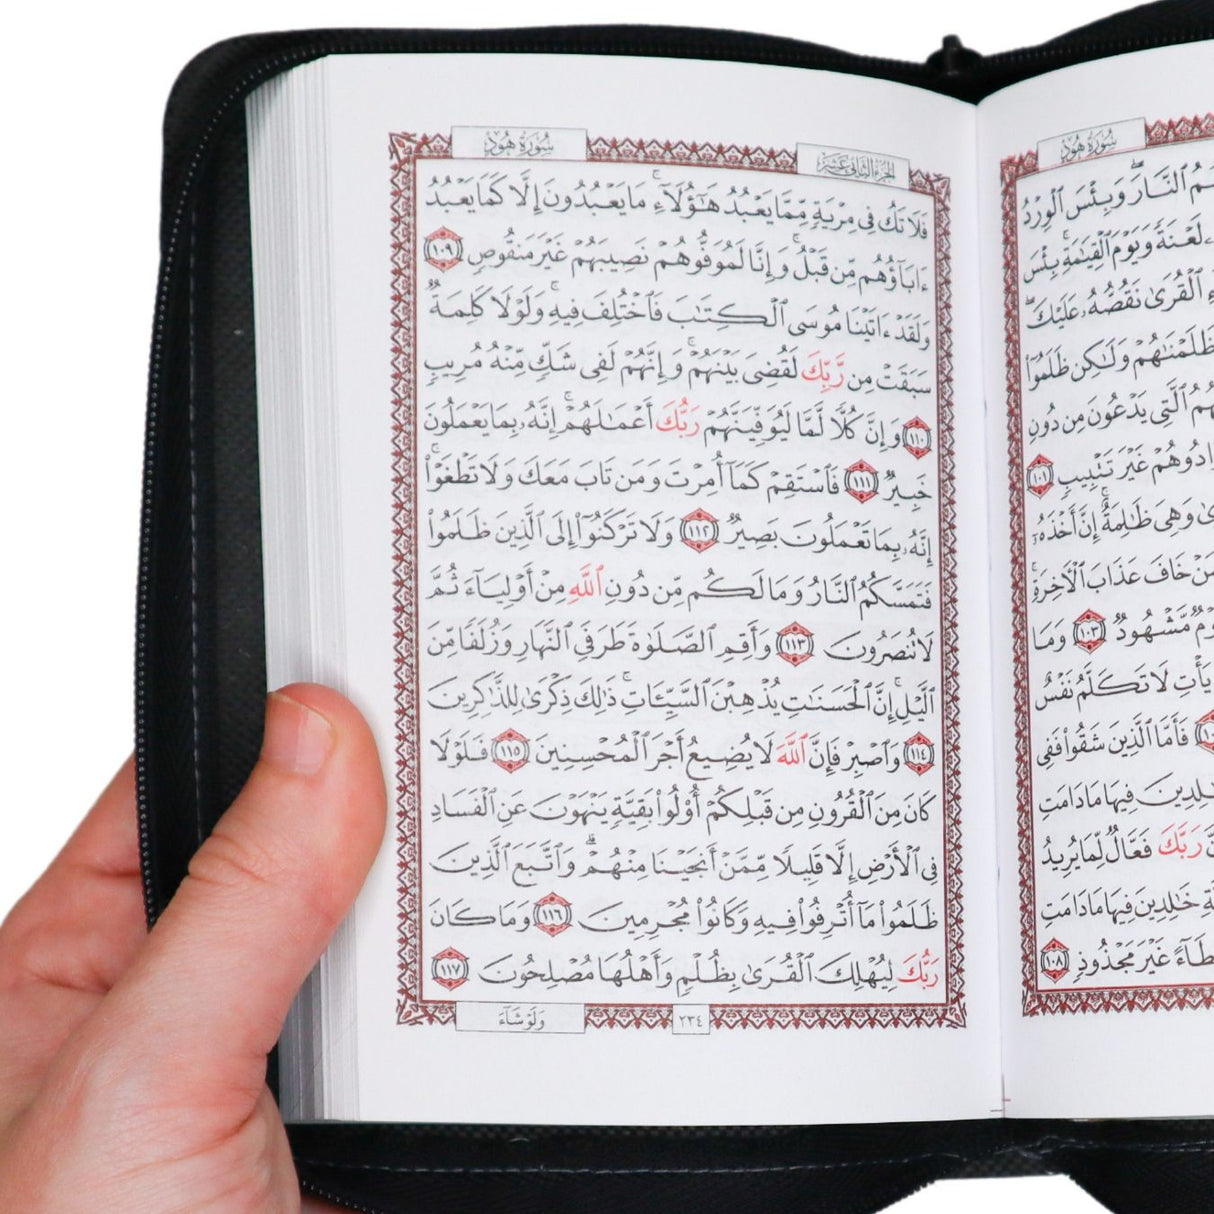 سُورَةُ هُودٍ
ٱلنَّارَ ۖ وَبِئْسَ ٱلْوِرْدُ
لَعْنَةً وَيَوْمَ ٱلْقِيَـٰمَةِ ۚ بِئْسَ
ٱلْقُرَىٰ نَقُصُّهُۥ عَلَيْكَ ۖ
ظَلَمْنَـٰهُمْ وَلَـٰكِن ظَلَمُوٓا۟
ٱلَّتِى يَدْعُونَ مِن دُونِ
غَيْرَ تَتْبِيبٍ ١٠١
وَهِىَ ظَـٰلِمَةٌ ۚ إِنَّ أَخْذَهُۥٓ
خَافَ عَذَابَ ٱلْـَٔاخِرَةِ ۚ
مَّشْهُودٌ ١٠٣ وَمَا
يَأْتِ لَا تَكَلَّمُ نَفْسٌ
فَأَمَّا ٱلَّذِينَ شَقُوا۟ فَفِى
خَـٰلِدِينَ فِيهَا مَا دَامَتِ
رَبَّكَ فَعَّالٌ لِّمَا يُرِيدُ
خَـٰلِدِينَ فِيهَا مَا دَامَتِ
غَيْرَ مَجْذُوذٍ ١٠٨
الجزء الثاني عشر
سُورَةُ هُودٍ
فَلَا تَكُ فِى مِرْيَةٍ مِّمَّا يَعْبُدُ هَـٰٓؤُلَآءِ ۚ مَا يَعْبُدُونَ إِلَّا كَمَا يَعْبُدُ
ءَابَآؤُهُم مِّن قَبْلُ ۚ وَإِنَّا لَمُوَفُّوهُمْ نَصِيبَهُمْ غَيْرَ مَنقُوصٍ ١٠٩
وَلَقَدْ ءَاتَيْنَا مُوسَى ٱلْكِتَـٰبَ فَٱخْتُلِفَ فِيهِ ۚ وَلَوْلَا كَلِمَةٌ
سَبَقَتْ مِن رَّبِّكَ لَقُضِىَ بَيْنَهُمْ ۚ وَإِنَّهُمْ لَفِى شَكٍّ مِّنْهُ مُرِيبٍ
١١٠ وَإِنَّ كُلًّا لَّمَّا لَيُوَفِّيَنَّهُمْ رَبُّكَ أَعْمَـٰلَهُمْ ۚ إِنَّهُۥ بِمَا يَعْمَلُونَ
خَبِيرٌ ١١١ فَٱسْتَقِمْ كَمَآ أُمِرْتَ وَمَن تَابَ مَعَكَ وَلَا تَطْغَوْا۟ ۚ
إِنَّهُۥ بِمَا تَعْمَلُونَ بَصِيرٌ ١١٢ وَلَا تَرْكَنُوٓا۟ إِلَى ٱلَّذِينَ ظَلَمُوا۟
فَتَمَسَّكُمُ ٱلنَّارُ وَمَا لَكُم مِّن دُونِ ٱللَّهِ مِنْ أَوْلِيَآءَ ثُمَّ
لَا تُنصَرُونَ ١١٣ وَأَقِمِ ٱلصَّلَوٰةَ طَرَفَىِ ٱلنَّهَارِ وَزُلَفًا مِّنَ
ٱلَّيْلِ ۚ إِنَّ ٱلْحَسَنَـٰتِ يُذْهِبْنَ ٱلسَّيِّـَٔاتِ ۚ ذَٰلِكَ ذِكْرَىٰ لِلذَّٰكِرِينَ
١١٤ وَٱصْبِرْ فَإِنَّ ٱللَّهَ لَا يُضِيعُ أَجْرَ ٱلْمُحْسِنِينَ ١١٥ فَلَوْلَا
كَانَ مِنَ ٱلْقُرُونِ مِن قَبْلِكُمْ أُو۟لُوا۟ بَقِيَّةٍ يَنْهَوْنَ عَنِ ٱلْفَسَادِ
فِى ٱلْأَرْضِ إِلَّا قَلِيلًا مِّمَّنْ أَنجَيْنَا مِنْهُمْ ۗ وَٱتَّبَعَ ٱلَّذِينَ
ظَلَمُوا۟ مَآ أُتْرِفُوا۟ فِيهِ وَكَانُوا۟ مُجْرِمِينَ ١١٦ وَمَا كَانَ
رَبُّكَ لِيُهْلِكَ ٱلْقُرَىٰ بِظُلْمٍ وَأَهْلُهَا مُصْلِحُونَ ١١٧
٢٣٤
وَلَوْ شَآءَ